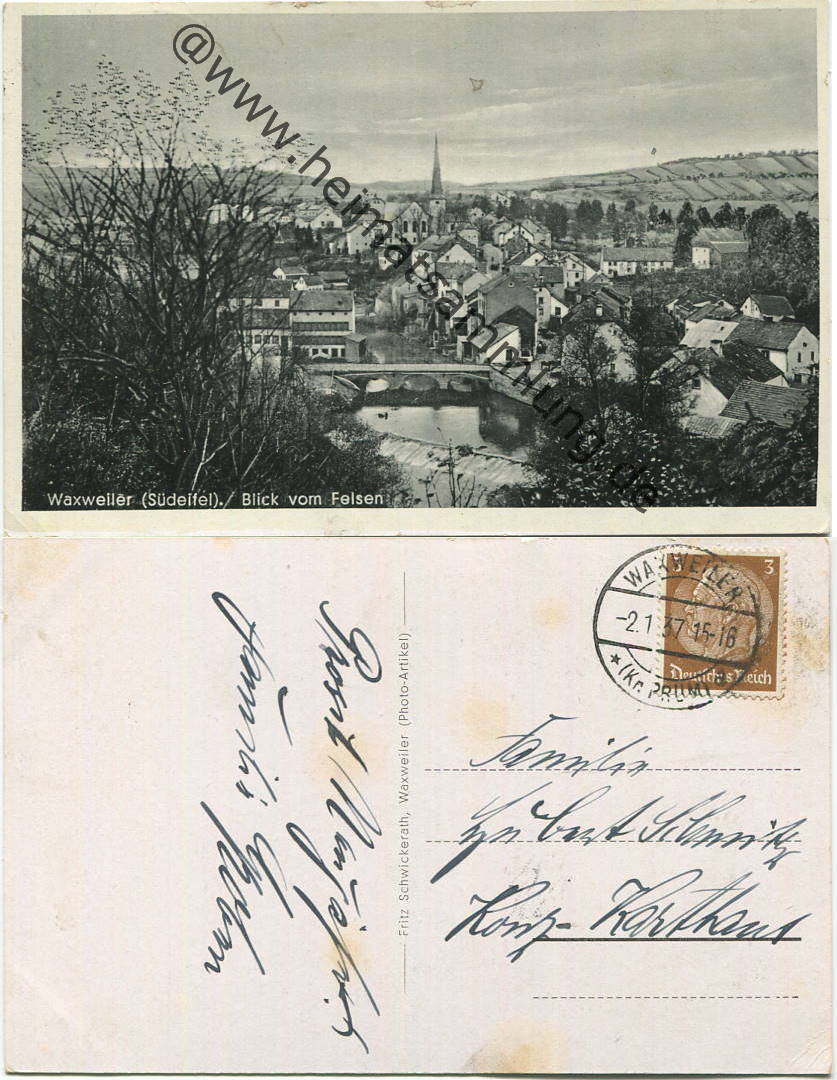 @www.heimatsammlung.de
Waxweiler (Südeifel). Blick vom Felsen
WAXWEILER
-2.1.37.15-16
* (Kr. PRÜM)
3 3
Deutsches Reich
Familie
Hubert Schmitz
Konz-Karthaus
Fritz Schwickerath, Waxweiler (Photo-Artikel)
Prosit Neujahr
Familie